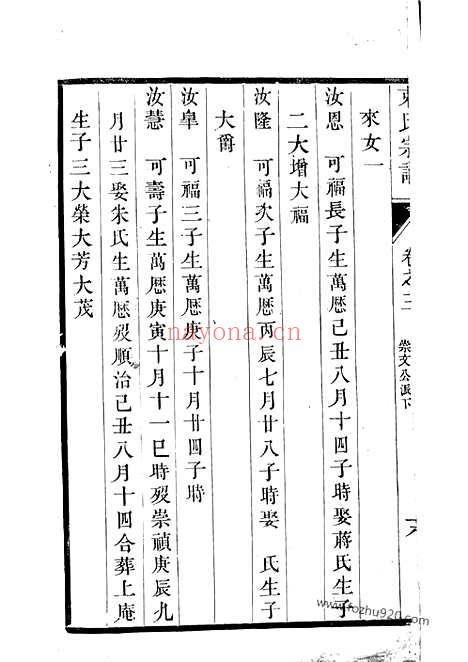 宗譜
卷之三
崇文公派下
來女一
汝恩 可福長子生萬厯己丑八月十四子時娶蔣氏生子
二大增大福
汝隆 可福次子生萬厯丙辰七月廿八子時娶 氏生子
大爵
汝皐 可福三子生萬厯庚子十月廿四子時
汝慧 可壽子生萬厯庚寅十月十一巳時歿崇禎庚辰九
月廿三娶朱氏生萬厯歿順治己丑八月十四合葬上庵
生子三大榮大芳大茂
nayona.cn
www.fozhu920.com